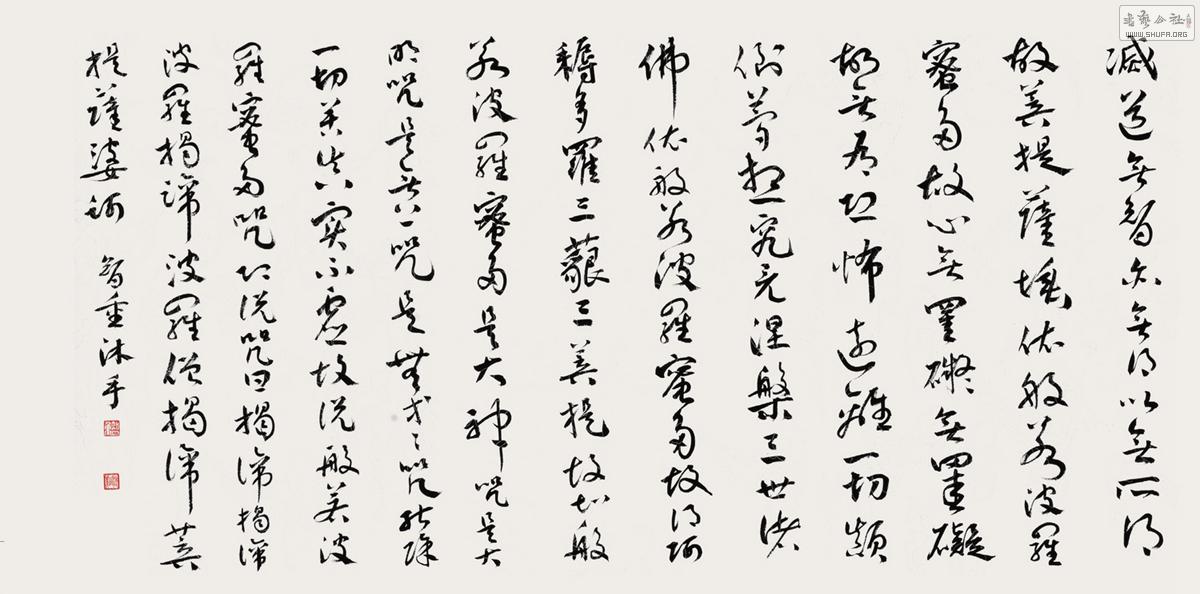 滅道無智亦無得以無所得
故菩提薩埵依般若波羅
蜜多故心無罣礙無罣礙
故無有恐怖遠離一切顛
倒夢想究竟涅槃三世諸
佛依般若波羅蜜多故得阿
耨多羅三藐三菩提故知般
若波羅蜜多是大神咒是大
明咒是無上咒是無等々咒能除
一切苦真實不虛故說般若波
羅蜜多咒即說咒曰揭諦揭諦
波羅揭諦波羅僧揭諦菩
提薩婆訶 智重沐手
書藝公社
WWW.SHUFA.ORG